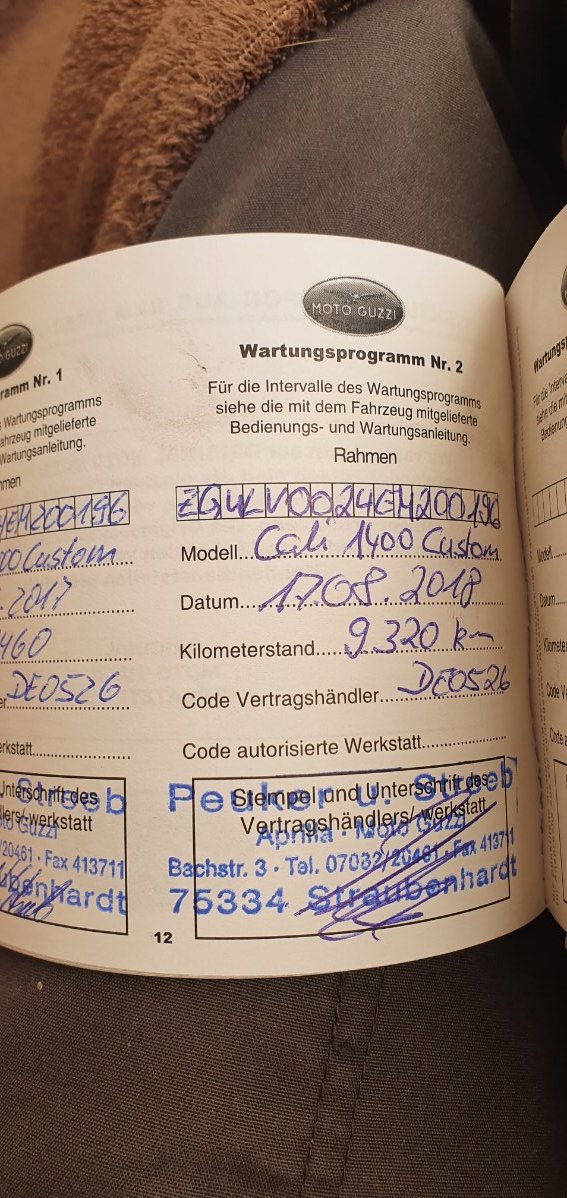 MOTO GUZZI
ramm Nr. 1
Wartungsprogramms
ahrzeug mitgelieferte
Wartungsanleitung.
men
EM200196
00 Custom
.2017
460
DE0526
erkstatt
Unterschrift des
lers/-werkstatt
Streeb
Moto Guzzi
/20461 · Fax 413711
ubenhardt
MOTO GUZZI
Wartungsprogramm Nr. 2
Für die Intervalle des Wartungsprogramms
siehe die mit dem Fahrzeug mitgelieferte
Bedienungs- und Wartungsanleitung.
Rahmen
ZGULV0024EM200196
Modell...Cali 1400 Custom
Datum...17.08.2018
Kilometerstand...9.320 km
Code Vertragshändler...DE0526
Code autorisierte Werkstatt...
Stempel und Unterschrift des
Vertragshändlers/-werkstatt
Peuker u. Streeb
Aprilia · Moto Guzzi
Bachstr. 3 · Tel. 07082/20461 · Fax 413711
75334 Straubenhardt
12
Wartungs
Modell
Datum
Kilomete
Code V